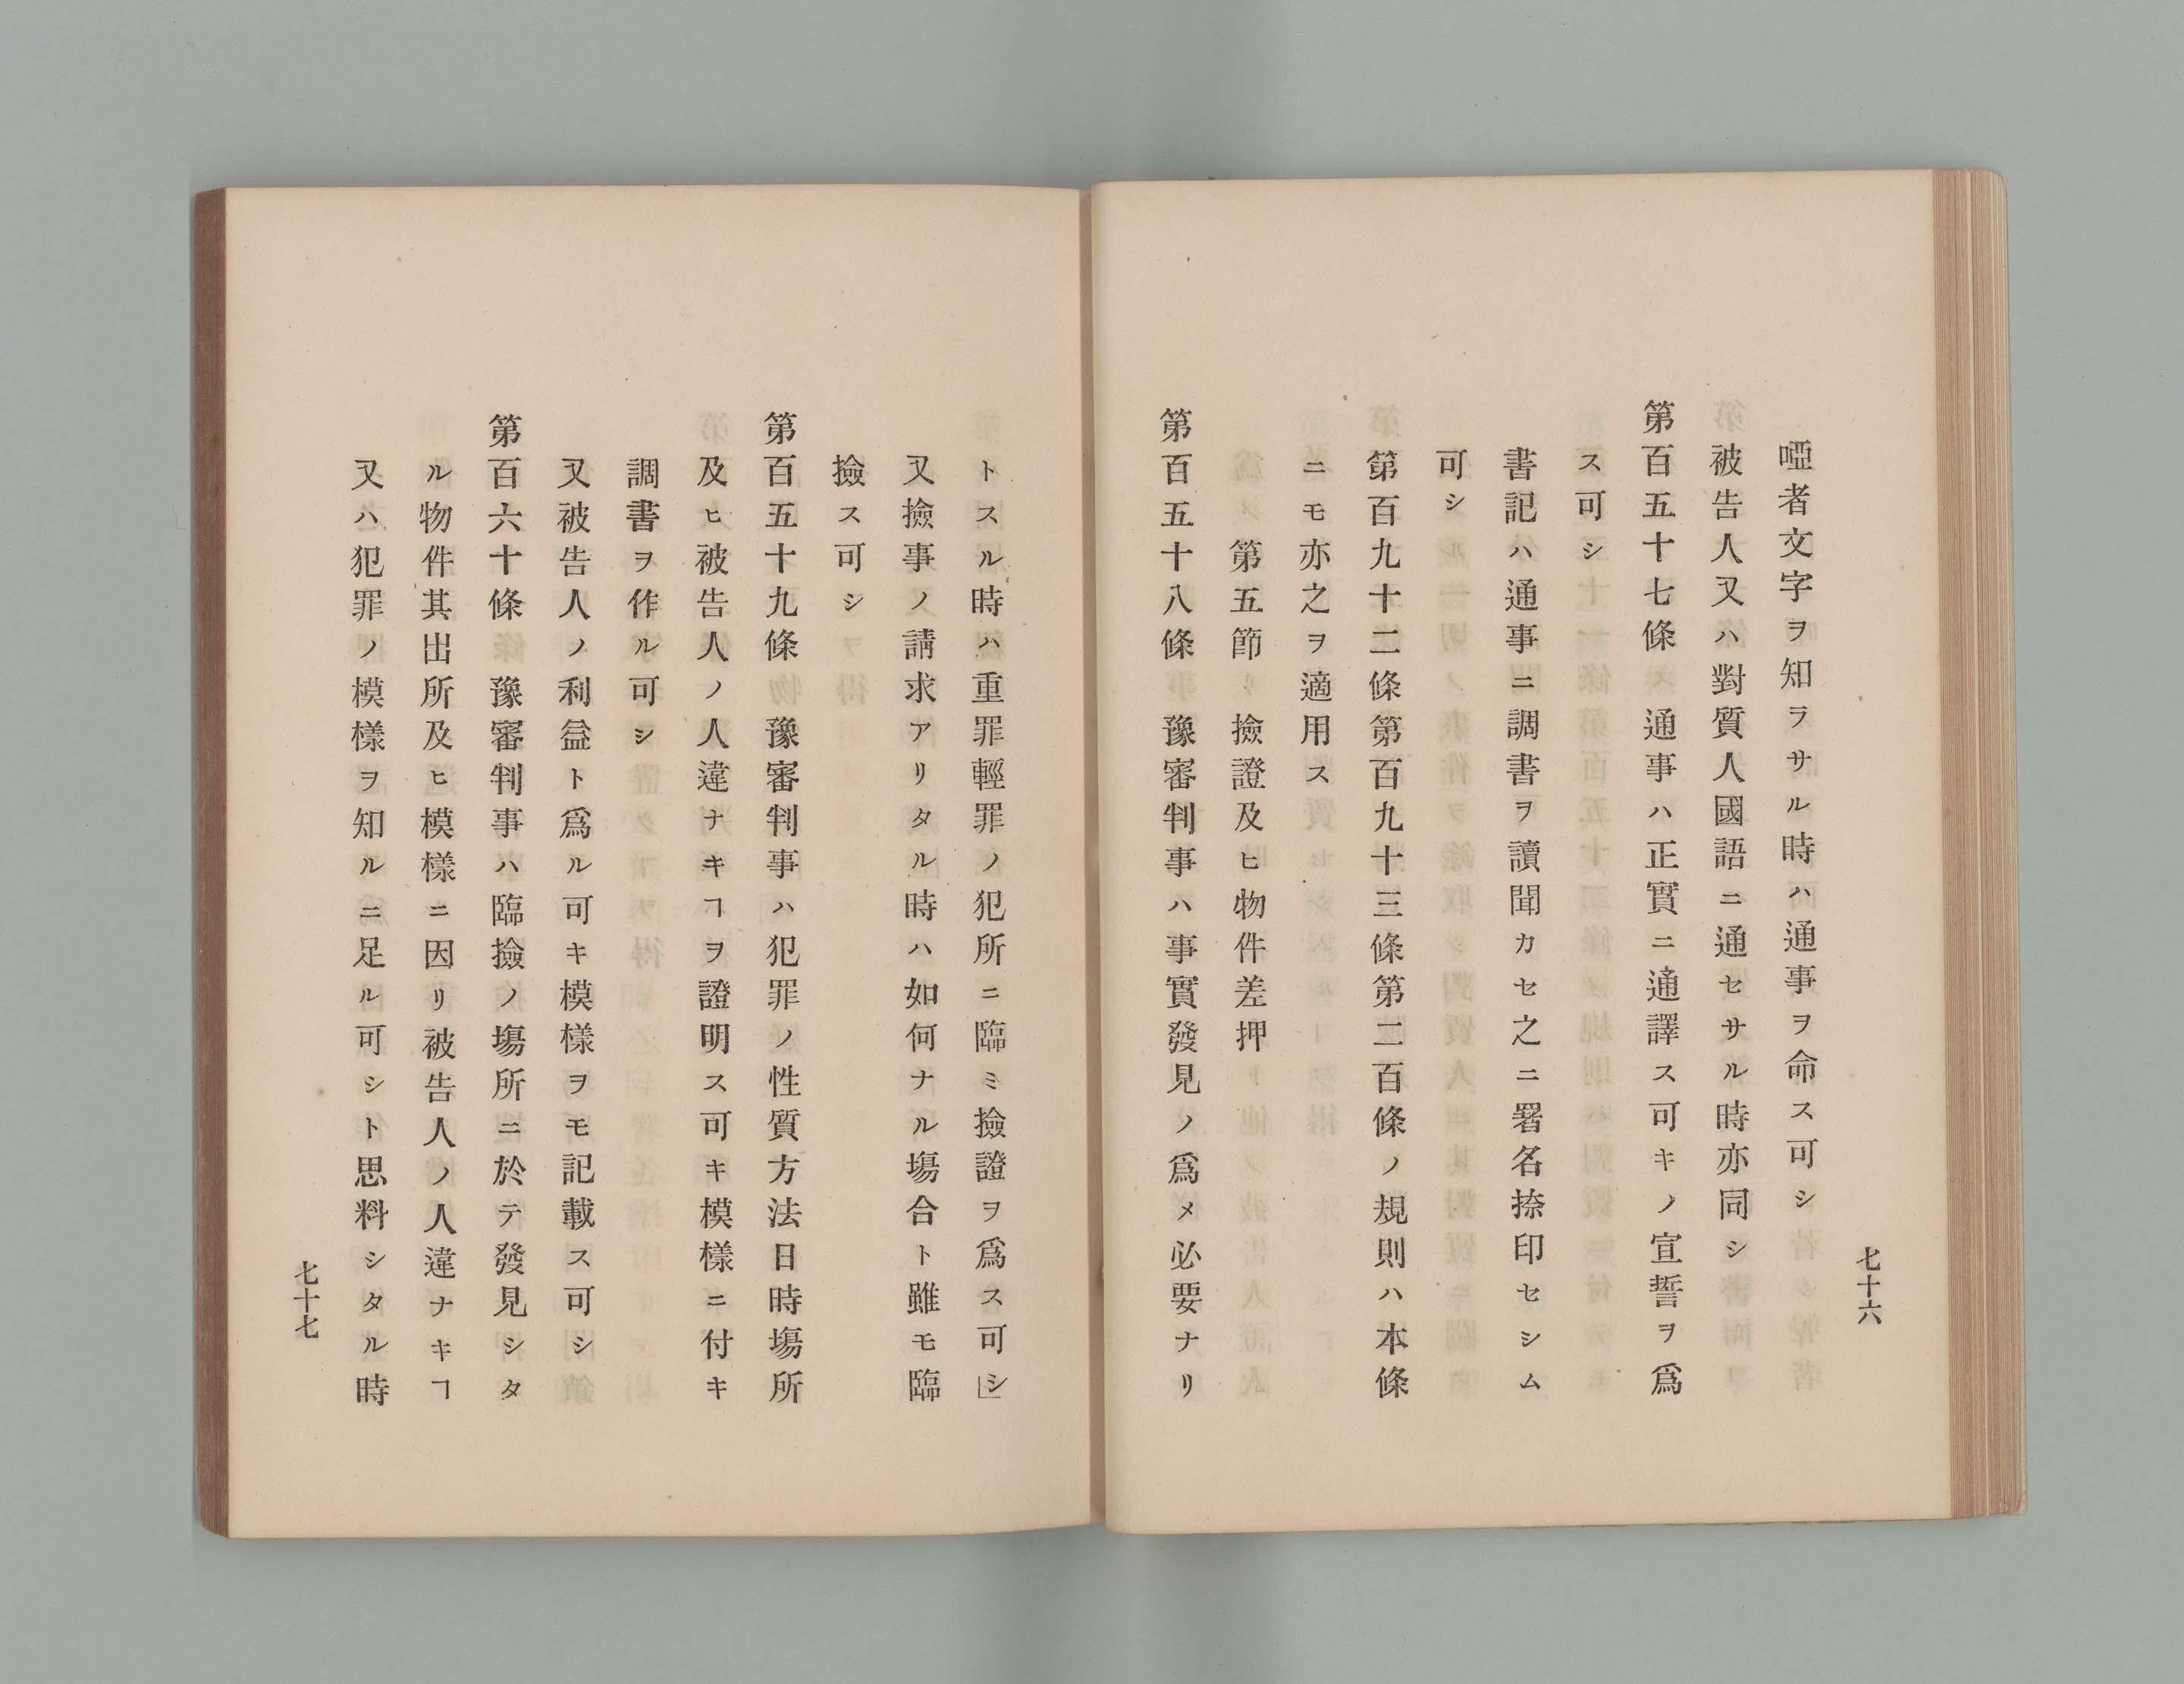 七十六
啞者文字ヲ知ラサル時ハ通事ヲ命ス可シ
被告人又ハ對質人國語ニ通セサル時亦同シ
第百五十七條　通事ハ正實ニ通譯ス可キノ宣誓ヲ爲
ス可シ
書記ハ通事ニ調書ヲ讀聞カセ之ニ署名捺印セシム
可シ
第百九十二條第百九十三條第二百條ノ規則ハ本條
ニモ亦之ヲ適用ス
第五節　撿證及ヒ物件差押
第百五十八條　豫審判事ハ事實發見ノ爲メ必要ナリ
トスル時ハ重罪輕罪ノ犯所ニ臨ミ撿證ヲ爲ス可シ」
又撿事ノ請求アリタル時ハ如何ナル塲合ト雖モ臨
撿ス可シ
第百五十九條　豫審判事ハ犯罪ノ性質方法日時塲所
及ヒ被告人ノ人違ナキヿヲ證明ス可キ模樣ニ付キ
調書ヲ作ル可シ
又被告人ノ利益ト爲ル可キ模樣ヲモ記載ス可シ
第百六十條　豫審判事ハ臨撿ノ塲所ニ於テ發見シタ
ル物件其出所及ヒ模樣ニ因リ被告人ノ人違ナキヿ
又ハ犯罪ノ模樣ヲ知ルニ足ル可シト思料シタル時
七十七